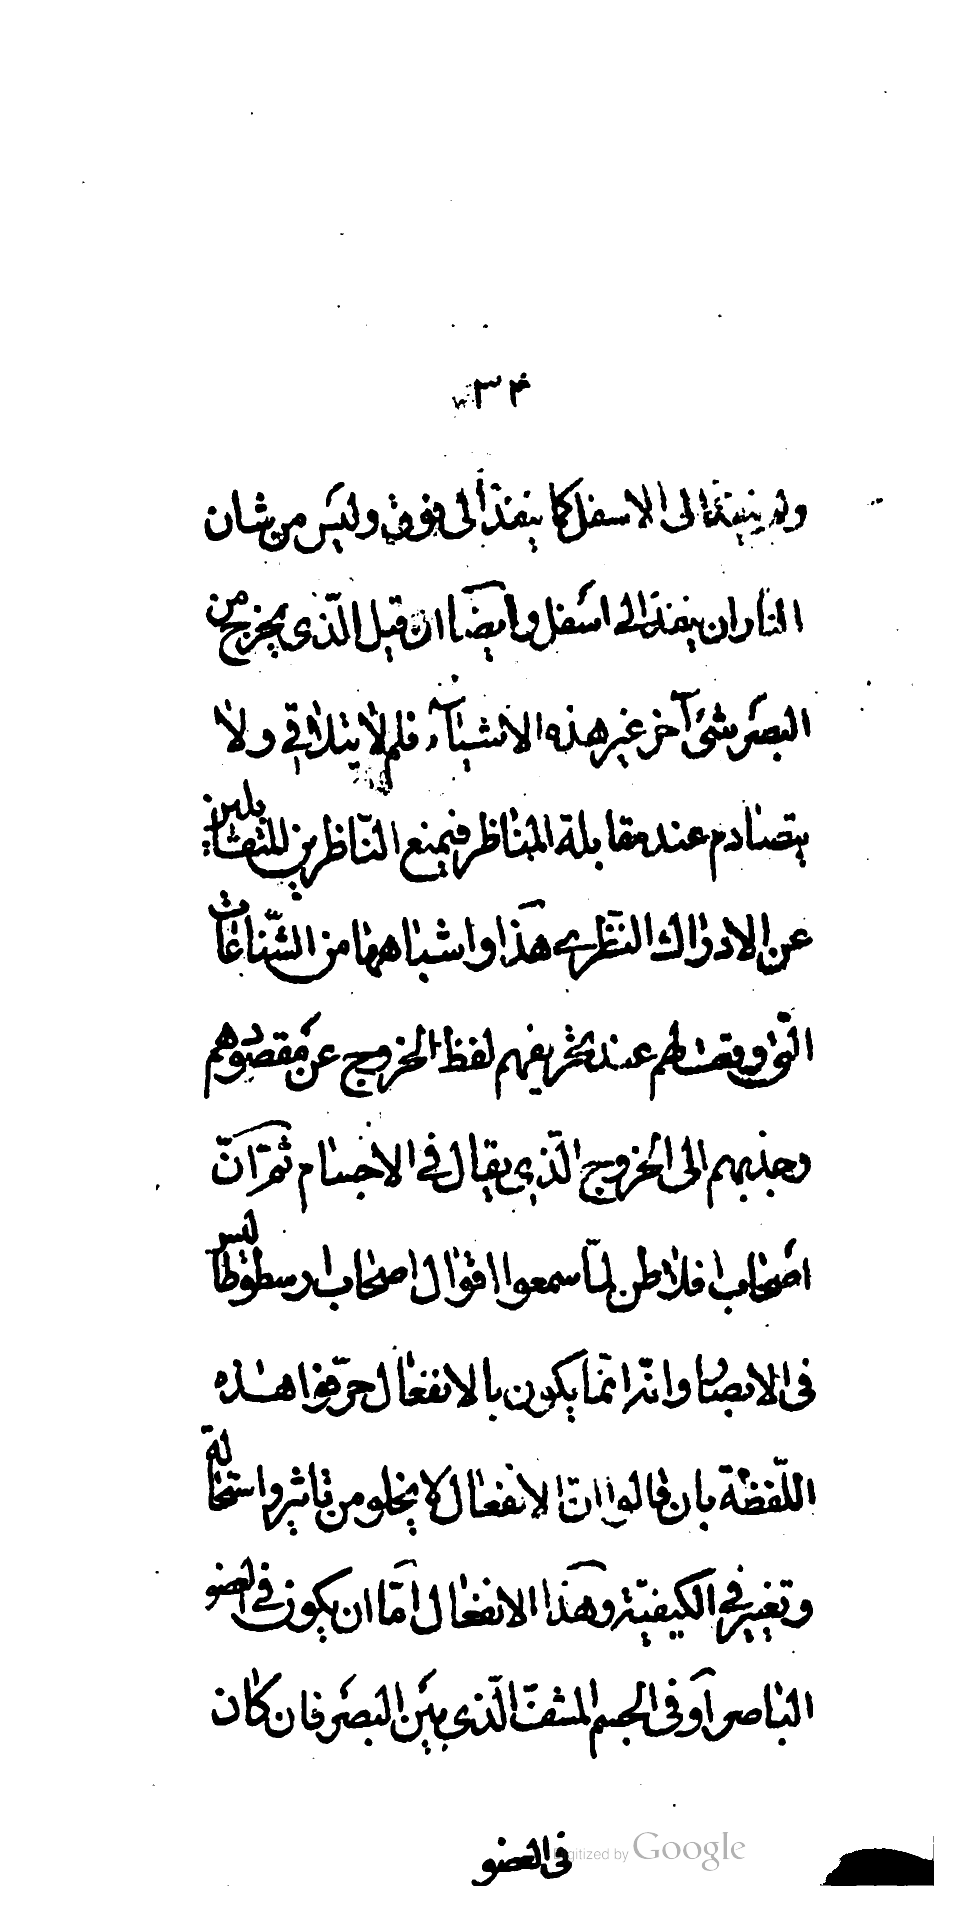 ۳۴
ولم ينفذ الى الاسفل كما ينفذ الى فوق وليس من شان
النار ان ينفذ الى اسفل وايضا ان قيل الّذى يخرج من
البصر شئ آخر غير هذه الاشياء فلم لا يتلاقى ولا
يتصادم عند مقابلة المناظر فيمنع النّاظرين المتقابلين
عن الادراك النظرى هذا واشباهها من الشّناعات
الّتى وقعت لهم عند تحريفهم لفظ الخروج عن مقصودهم
وجذبهم الى الخروج الّذى يقال فى الاجسام ثم انّ
اصحاب افلاطن لمّا سمعوا اقوال اصحاب ارسطوطاليس
فى الابصار وانّه انّما يكون بالانفعال حرّفوا هذه
اللّفظة بان قالوا انّ الانفعال لا يخلو من تاثير واستحالة
وتغيير فى الكيفيّة وهذا الانفعال امّا ان يكون فى العضو
الباصر او فى الجسم المشفّ الّذى بين البصر فان كان
فى العضو
Digitized by Google